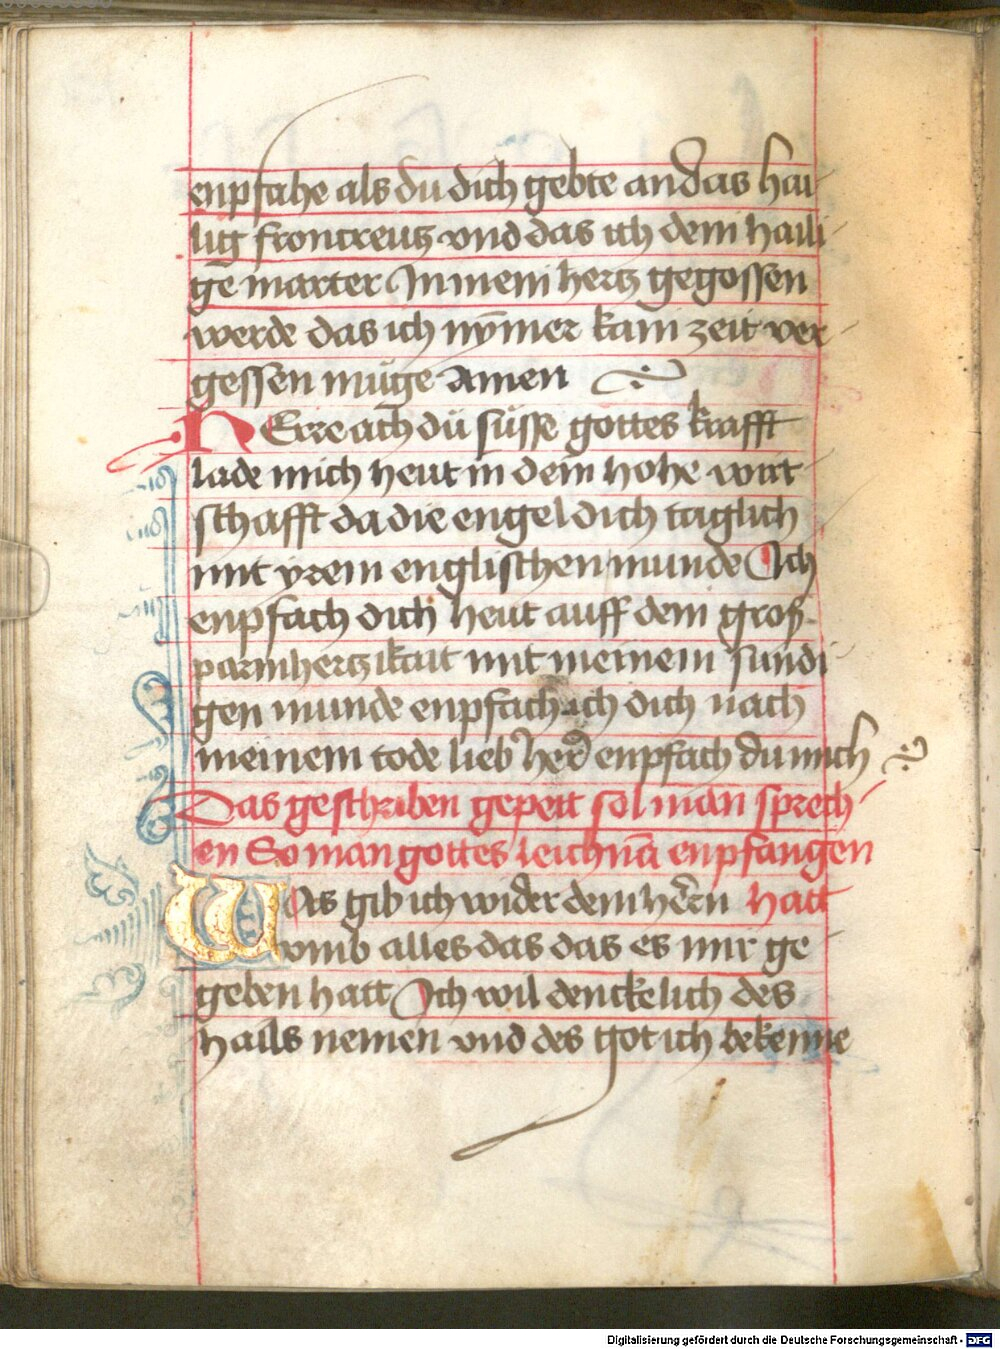 enpfahe als du dich gebte an das hai-
lig froncreutz vnd das ich dein haili-
gē marter In mein hertz gegossen
werde das ich nȳmer kain zeit ver-
gessen müge Amen
HErre ach dü süsse gottes krafft
lade mich heut in dein hohe wirt-
schafft da die engel dich täglich
mit yrem englischen munde Ich
enpfach dich heut auff dein groß
parmhertzikait mit meinem sündi-
gen munde enpfach ich dich nach
meinem tode lieb her enpfach du mich
Das geschriben gepett sol man sprech-
en So man gottes leichnā enpfangen
WAs gib ich wider dem hērn hatt
vmb alles das das es mir ge
geben hatt Ich wil denckelich des
hails nemen vnd des got ich bekenne
Digitalisierung gefördert durch die Deutsche Forschungsgemeinschaft - DFG